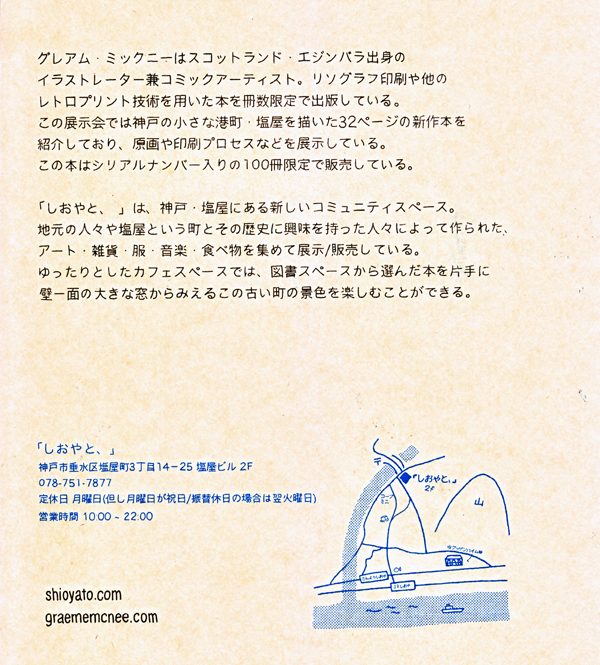 グレアム・ミックニーはスコットランド・エジンバラ出身の
イラストレーター兼コミックアーティスト。リソグラフ印刷や他の
レトロプリント技術を用いた本を冊数限定で出版している。
この展示会では神戸の小さな港町・塩屋を描いた32ページの新作本を
紹介しており、原画や印刷プロセスなどを展示している。
この本はシリアルナンバー入りの100冊限定で販売している。
「しおやと、 」は、神戸・塩屋にある新しいコミュニティスペース。
地元の人々や塩屋という町とその歴史に興味を持った人々によって作られた、
アート・雑貨・服・音楽・食べ物を集めて展示/販売している。
ゆったりとしたカフェスペースでは、図書スペースから選んだ本を片手に
壁一面の大きな窓からみえるこの古い町の景色を楽しむことができる。
「しおやと、」
神戸市垂水区塩屋町3丁目14-25 塩屋ビル 2F
078-751-7877
定休日 月曜日(但し月曜日が祝日/振替休日の場合は翌火曜日)
営業時間 10:00 ~ 22:00
shioyato.com
graememcnee.com
〒
「しおやと、」
2F
山